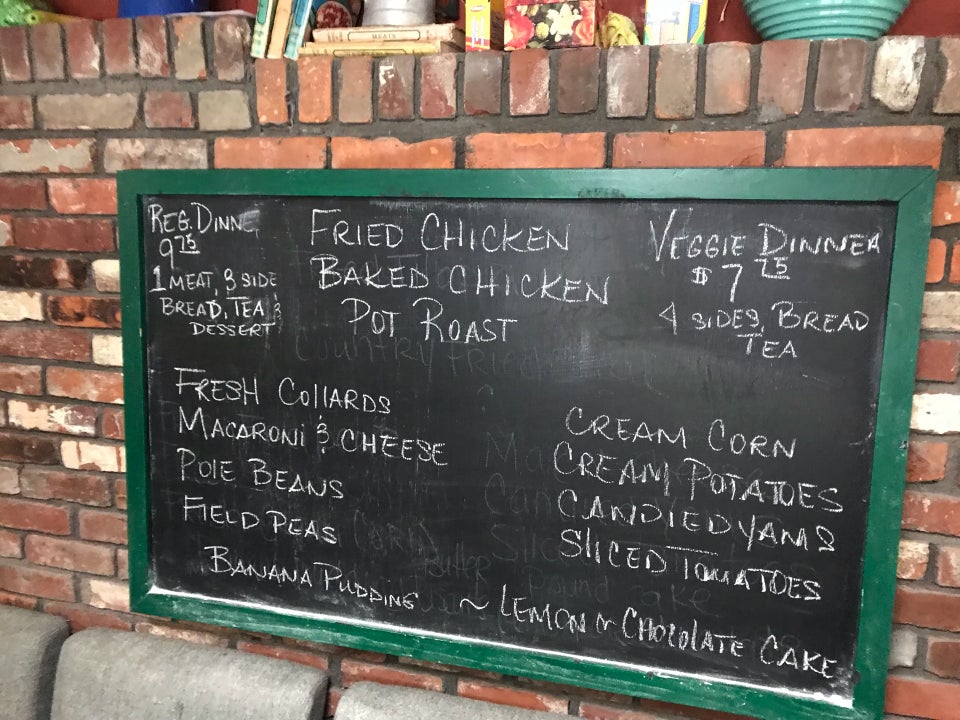 MEATS
REG. DINNE
9 75
1 MEAT, 3 SIDE
BREAD, TEA &
DESSERT
FRIED CHICKEN
BAKED CHICKEN
POT ROAST
VEGGIE DINNER
$ 7 75
4 SIDES, BREAD
TEA
FRESH COLLARDS
MACARONI & CHEESE
POLE BEANS
FIELD PEAS
CREAM CORN
CREAM POTATOES
CANDIED YAMS
SLICED TOMATOES
BANANA PUDDING ~ LEMON or CHOCOLATE CAKE